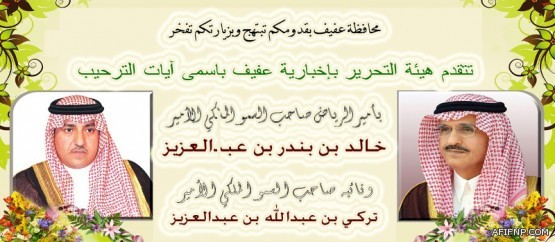 محافظة عفيف بقدومكم تبتهج وبزيارتكم تفخر
تتقدم هيئة التحرير بإخبارية عفيف باسمى آيات الترحيب
بأمير الرياض صاحب السمو الملكي الأمير
خالد بن بندر بن عبدالعزيز
ونائبه صاحب السمو الملكي الأمير
تركي بن عبدالله بن عبدالعزيز
AFIFNP.COM